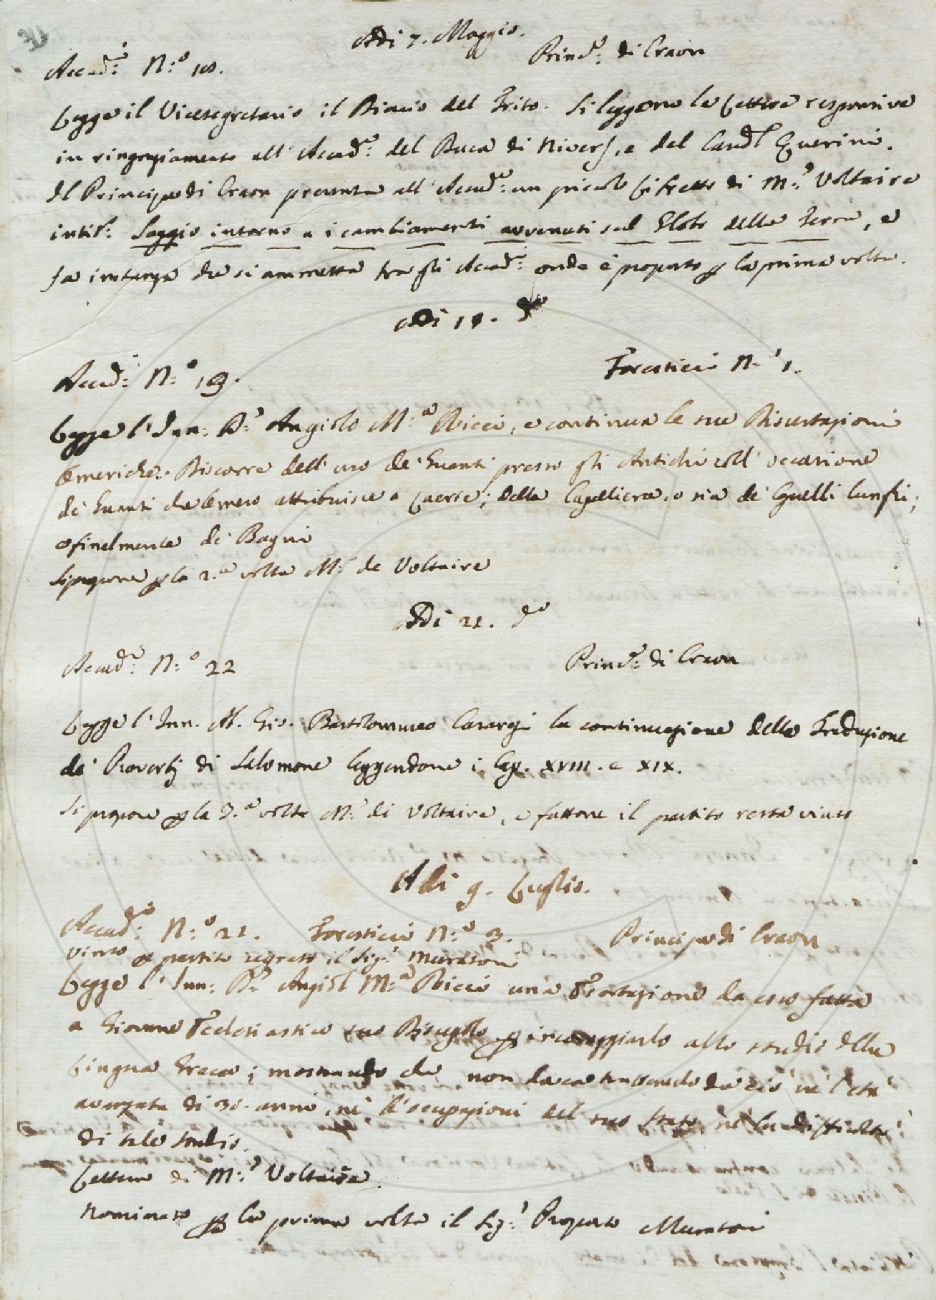 Adi 7. Maggio.
Accad.i N.o 10. Princ.e di Craon
Legge il Vicesegretario il Diario del Frito. Si leggono le lettere responsive
in ringraziamento all' Accad.a del Duca di Nivers, e del Card.l Querini.
Il Principe di Craon presenta all' Accad.a un piccolo libretto di M.r Voltaire
intit.o Saggio intorno a i cambiamenti avvenuti sul Globo della Terra, e
fa instanza che si ammetta tra gli Accad.i onde è proposto p la prima volta.
Adi 14. d.o
Accad.i N.o 19. Forestieri N.o 1.
Legge l'Inn. D.r Angiolo M.a Ricci, e continua le sue Dissertazioni
Omeriche. Discorre dell' uso de' Guanti presso gli Antichi coll' occasione
di Guanti che Omero attribuisce a Laerte; della Capelliera, o sia de' Capelli lunghi;
e finalmente de' Bagni
Si propone p la 2.a volta M.r de Voltaire
Adi 21. d.o
Accad.i N.o 22 Princ.e di Craon
Legge l'Inn. Ab. Gio. Bartolommeo Casaregi la continuazione della Traduzione
de' Proverbj di Salomone leggendone i Cap. XVIII. e XIX.
Si propone p la 3.a volta M.r di Voltaire, e fattone il partito resta vinto
Adi 9. Luglio.
Accad.i N.o 21. Forestieri N.o 3. Principe di Craon
Vinto p partito segreto il Sig.r Muratori
Legge l'Inn. D.r Angiol M.a Ricci una Esortazione da esso fatta
a Giovane Ecclesiastico suo Discepolo p incoraggiarlo allo studio della
Lingua Greca; mostrando che non da ciò nè l'età
avanzata di 30. anni, nè l'occupazioni del suo stato, nè la difficoltà
di tale studio.
Lettera di M.r Voltaire
Nominato p la prima volta il Sig.r Proposto Muratori